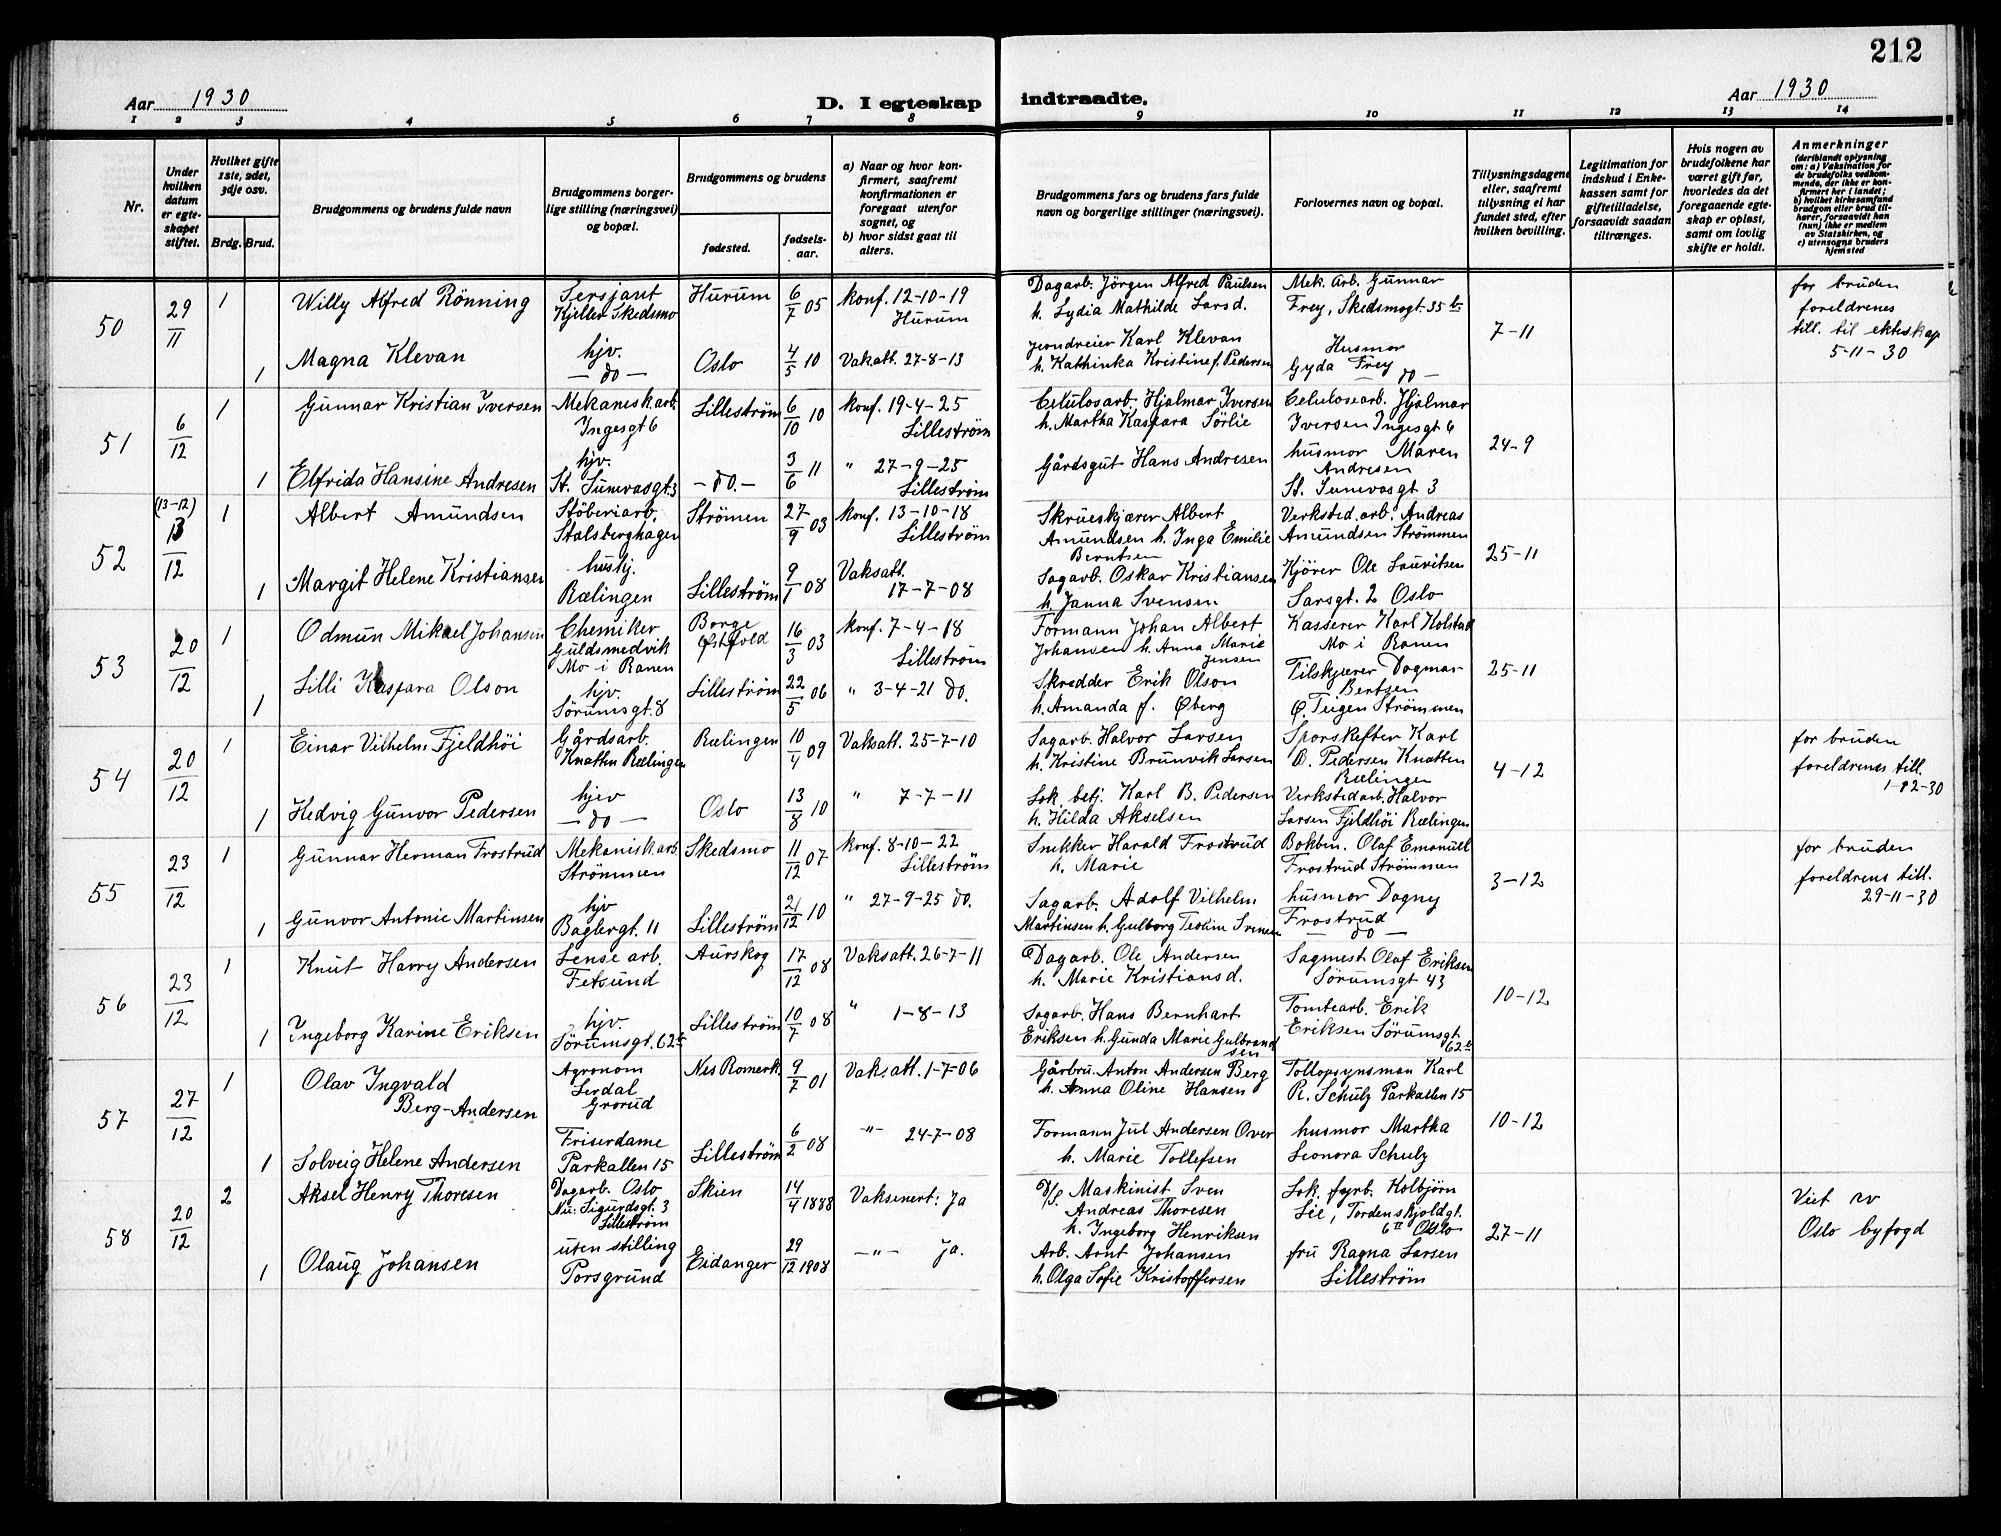 212
Aar 1930
D. I egteskap indtraadte.
Aar 1930
1 2 3 4 5 6 7 8 9 10 11 12 13 14
Nr.
Under hvilken datum er egteskapet stiftet.
Hvilket gifte 1ste, 2det, 3dje osv.
Brdg. Brud.
Brudgommens og brudens fulde navn
Brudgommens borgerlige stilling (næringsvei) og bopæl.
Brudgommens og brudens
fødested.
fødselsaar.
a) Naar og hvor konfirmert, saafremt konfirmationen er foregaat utenfor sognet, og
b) hvor sidst gaat til alters.
Brudgommens fars og brudens fars fulde navn og borgerlige stillinger (næringsvei).
Forlovernes navn og bopæl.
Tillysningsdagene eller, saafremt tillysning ei har fundet sted, efter hvilken bevilling.
Legitimation for indskud i Enkekassen samt for giftetilladelse, forsaavidt saadan tiltrænges.
Hvis nogen av brudefolkene har været gift før, hvorledes da det foregaaende egteskap er opløst, samt om lovlig skifte er holdt.
Anmerkninger
(deriblandt oplysning om: a) Vaksination for de brudefolks vedkommende, der ikke er konfirmert her i landet; b) hvilket kirkesamfund brudgom eller brud tilhører, forsaavidt han (hun) ikke er medlem av Statskirken, og c) utensogns bruders hjemsted
50
29/11
1
Willy Alfred Rönning
Sersjant
Kjeller Skedsmo
Hurum
6/7 05
Konf. 12-10-19
Hurum
Dagarb. Jörgen Alfred Paulsen
h. Lydia Mathilde Larsd.
Mek. Arb. Gunnar
Frey, Skedsmogt. 35 b
7-11
for bruden
foreldrenes
till. til ekteskap
5-11-30
1
Magna Klevan
hjv.
— do —
Oslo
4/5 10
Vakatt. 27-8-13
Karl Klevan
h. Kathinka Kristine f. Pedersen
Husmor
Gyda Frey
do —
51
6/12
1
Gunnar Kristian Iversen
Mekanisk arb.
Ingesgt 6
Lilleström
6/10 10
Konf. 19-4-25
Lilleström
Celulosarb. Hjalmar Iversen
h. Martha Kaspara Sörlie
Celulosearb. Hjalmar
Iversen Ingesgt 6
24-9
1
Elfrida Hansine Andresen
hjv.
St. Sunivasgt. 3
— do. —
3/6 11
" 27-9-25
Lilleström
Gårdsgut Hans Andresen
husmor Maren
Andresen
St. Sunivasgt 3
52
(13-12)
13/12
1
Albert Amundsen
Stöberiarb.
Stalsberghagen
Strömen
27/9 03
Konf. 13-10-18
Lilleström
Skrueskjærer Albert
Amundsen h. Inga Emilie
Berntsen
Verksted. arb. Andreas
Amundsen Strömmen
25-11
1
Margit Helene Kristiansen
hushj.
Rælingen
Lilleström
9/1 08
Vaksatt.
17-7-08
Sagarb. Oskar Kristiansen
h. Janna Svensen
Kjörer Ole Lauritsen
Sarsgt. 2 Oslo
53
20/12
1
Odmun Mikael Johansen
Chemiker
Guldsmedvik
Mo i Ranen
Borge
Østfold
16/3 03
Konf. 7-4-18
Lilleström
Formann Johan Albert
Johansen h. Anna Marie
Jensen
Kasserer Karl Holstad
Mo i Ranen
25-11
1
Lilli Kaspara Olson
hjv.
Sörumsgt. 8
Lilleström
22/5 06
" 3-4-21 do.
Skredder Erik Olson
h. Amanda f. Øberg
Tilskjærer Dagmar
Bertsen
Ø. Teigen Strömmen
54
20/12
1
Einar Vilhelm Fjeldhöi
Gårdsarb.
Knatten Rælingen
Rælingen
10/4 09
Vaksatt. 25-7-10
Sagarb. Halvor Larsen
h. Kristine Brunvik Larsen
Sporskifter Karl
B. Pedersen Knatten
Rælingen
4-12
for bruden
foreldrenes till.
1-12-30
1
Hedvig Gunvor Pedersen
hjev
— do —
Oslo
13/8 10
" 7-7-11
Lok. betj. Karl B. Pedersen
h. Hilda Akselsen
Verkstedarb. Halvor
Larsen Fjeldhöi Rælingen
55
23/12
1
Gunnar Herman Frostrud
Mekanisk. arb
Strömmen
Skedsmo
11/12 07
Konf. 8-10-22
Lilleström
Snekker Harald Frostrud
h. Marie
Bokbin. Olaf Emanuel
Frostrud Strömmen
3-12
for bruden
foreldrens till.
29-11-30
1
Gunvor Antonie Martinsen
hjv
Baglergt. 11
Lilleström
21/12 10
" 27-9-25 do.
Sagarb. Adolf Vilhelm
Martinsen h. Gulborg Teoline
husmor Dagny
Frostrud
— do —
56
23/12
1
Knut Harry Andersen
Lense arb.
Fetsund
Aurskog
17/12 08
Vaksatt. 26-7-11
Dagarb. Ole Andersen
h. Marie Kristiansd.
Sagmest Olaf Eriksen
Sörumsgt 43
10-12
1
Ingeborg Karine Eriksen
hjv.
Sörumsgt. 62
Lilleström
10/7 08
" 1-8-13
Sagarb. Hans Bernhart
Eriksen h. Gunda Marie Gulbrandsen
Tomtearb. Erik
Eriksen Sörumsgt.
62
57
27/12
1
Olav Ingvald
Berg-Andersen
Agronom
Lerdal
Grorud
Nes Romerk.
9/7 01
Vak. att. 1-7-06
Gårbru. Anton Andersen Berg
h. Anna Oline Hansen
Tollopsynsman Karl
R. Schulz Parkallen 15
10-12
1
Solveig Helene Andersen
Friserdame
Parkallen 15
Lilleström
6/2 08
—"— 24-7-08
Formann Jul Andersen Over
h. Marie Tollefsen
husmor Martha
Leonora Schulz
58
20/12
2
Aksel Henry Thoresen
Dagarb. Oslo
Nu: Sigurdsgt. 3
Lilleström
Skien
14/4 1888
Vaksinert: Ja
Maskinist Sven
Andreas Thoresen
h. Ingeborg Henriksen
Lok. fyrb. Kolbjörn
Lie, Tordenskjoldgt.
6 II Oslo
27-11
Viet av
Oslo byfogd
1
Olaug Johansen
uten stilling
Porsgrund
Eidanger
29/12 1908
—"— Ja.
Arb. Arnt Johansen
h. Olga Sofie Kristoffersen
fru Ragna Larsen
Lilleström